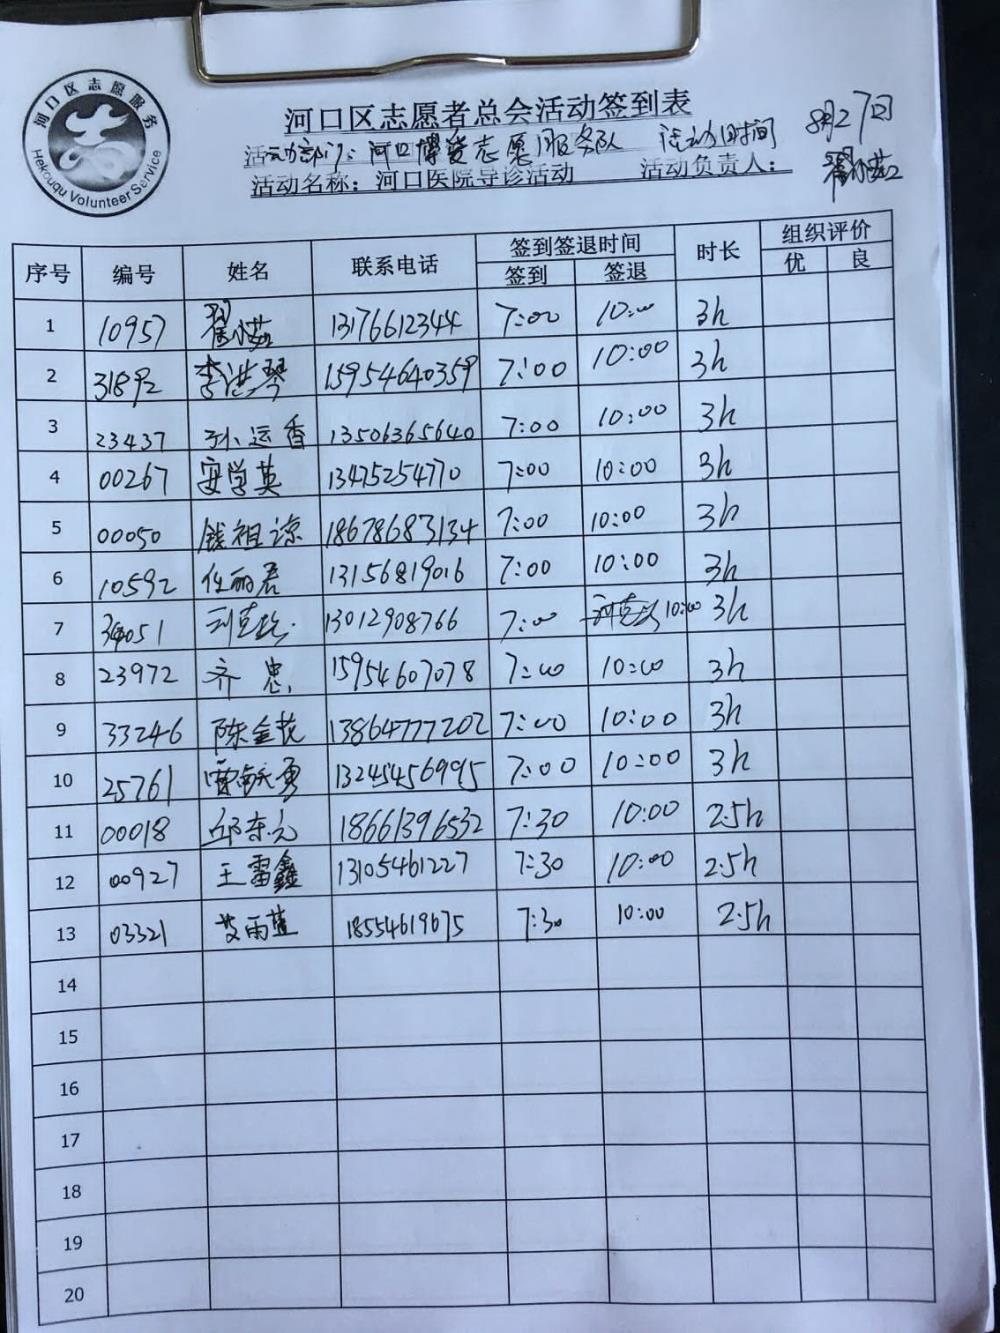 河口区志愿服务
Hekouqu Volunteer Service
河口区志愿者总会活动签到表
活动部门：河口博爱志愿服务队 活动时间 8月27日
活动名称：河口医院导诊活动 活动负责人：
序号 编号 姓名 联系电话 签到签退时间 时长 组织评价
签到 签退 优 良
1 10957 13176612344 7:00 10:00 3h
2 31892 李洪琴 15954640359 7:00 10:00 3h
3 23437 孙运香 13506365640 7:00 10:00 3h
4 00267 安学英 13475254770 7:00 10:00 3h
5 00050 钱祖谅 18678683134 7:00 10:00 3h
6 10592 任丽君 13156819016 7:00 10:00 3h
7 34051 13012908766 7:00 10:00 3h
8 23972 齐忠 15954607078 7:00 10:00 3h
9 33246 陈金花 13864777202 7:00 10:00 3h
10 25761 13245456995 7:00 10:00 3h
11 00018 邱东元 18661396532 7:30 10:00 2.5h
12 00927 王雷鑫 13105461227 7:30 10:00 2.5h
13 03321 艾雨蓝 18554619675 7:30 10:00 2.5h
14
15
16
17
18
19
20